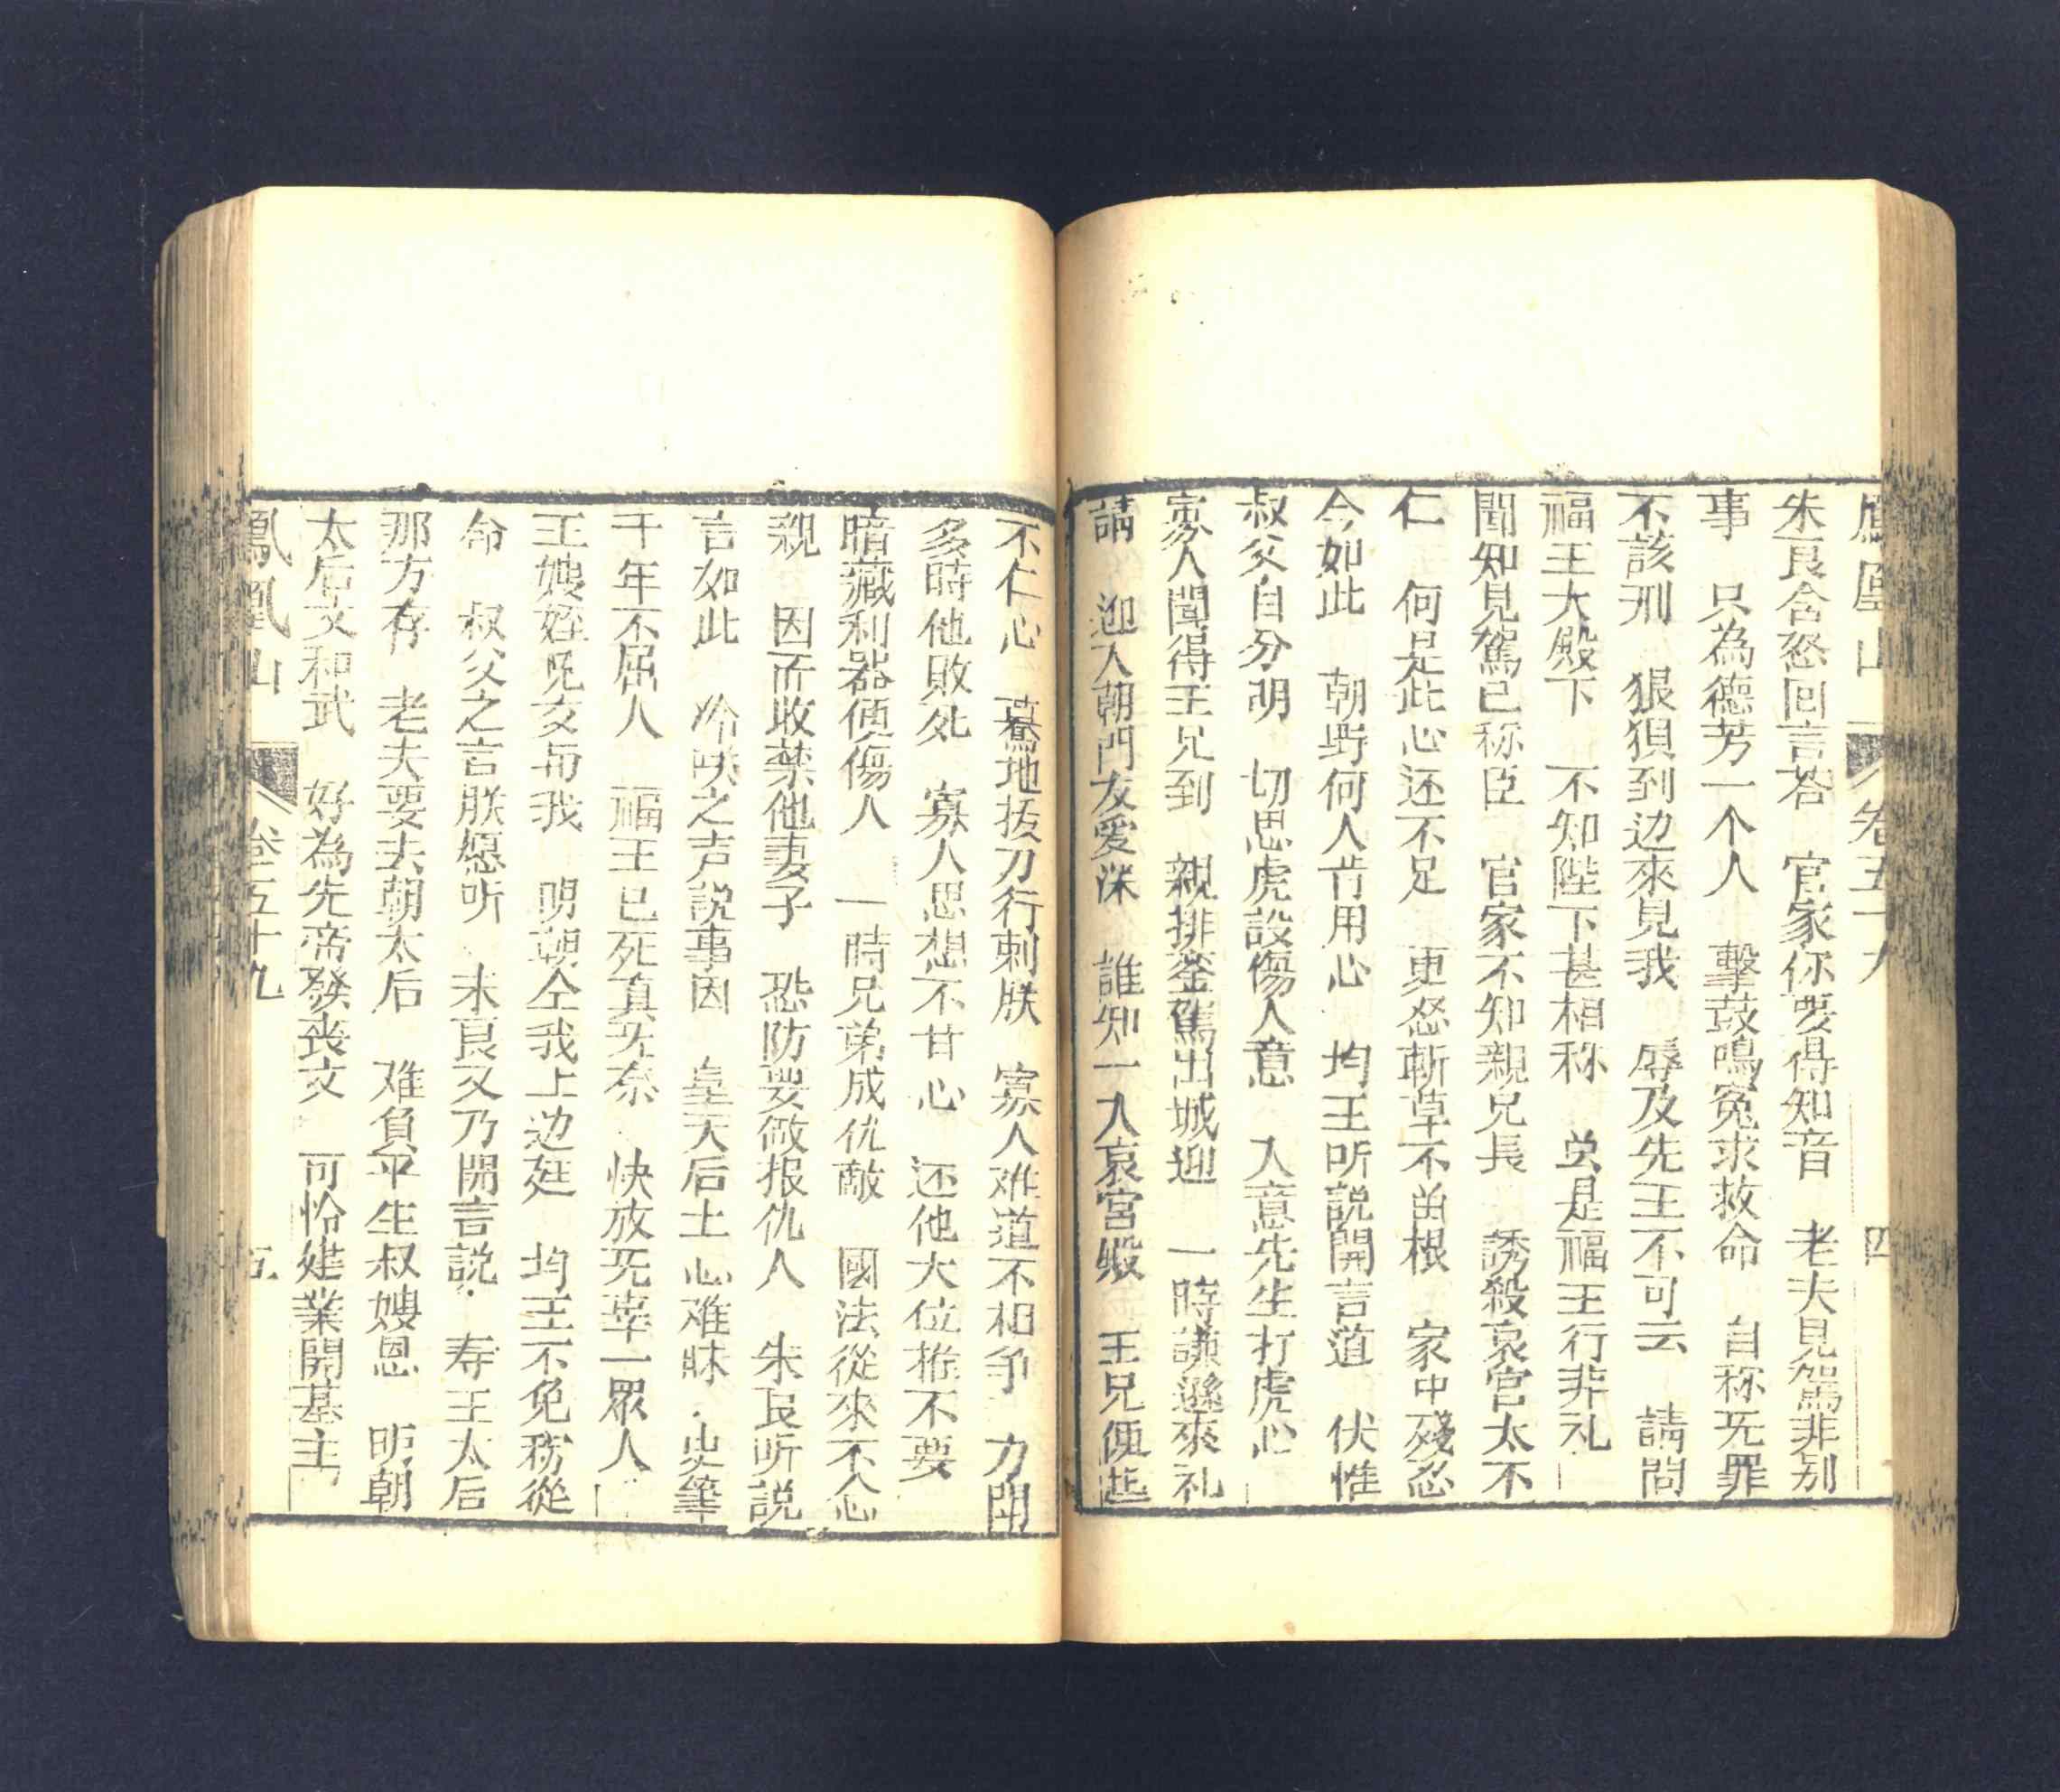 鳳凰山 卷五十九 四
朱良含怒回言荅 官家你要得知音 老夫見駕非别
事 只為德芳一个人 擊鼓鳴寃求救命 自称无罪
不該刑 狠狽到边來見我 辱及先王不可云 請問
福王大殿下 不知陛下甚相称 总是福王行非礼
聞知見駕已称臣 官家不知親兄長 誘殺哀宫太不
仁 何是此心还不足 更忍斬草不畄根 家中殘忍
今如此 朝野何人肯用心 均王听説開言道 伏惟
叔父自分明 切思虎設傷人意 人意先生打虎心
寡人聞得王兄到 親排銮駕出城迎 一時謙遜來礼
請 迎入朝門友愛深 誰知一入哀宫殿 王兄便起
不仁心 驀地拔刀行刺朕 寡人难道不相争 力閗
多時他敗死 寡人思想不甘心 还他大位推不要
暗藏利器便傷人 一時兄弟成仇敵 國法從來不念
親 因而收禁他妻子 恐防要做报仇人 朱良听説
言如此 冷咲之声説事因 皇天后土心难昧 史筆
千年不屈人 福王已死真无奈 快放无辜一眾人
王嫂姪児交与我 明朝仝我上边廷 均王不免称從
命 叔父之言朕愿听 朱良又乃開言説 寿王太后
那方存 老夫要去朝太后 难負平生叔嫂恩 明朝
太后文和武 好為先帝發喪文 可怜建業開基主
鳳凰山 卷五十九 五